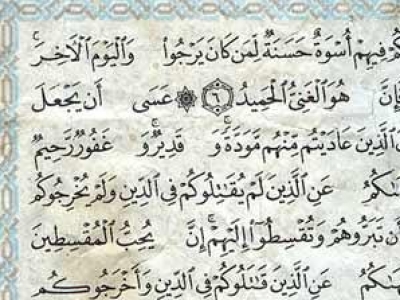 كُمْ فِيهِمْ أُسْوَةٌ حَسَنَةٌ لِّمَن كَانَ يَرْجُوا۟ وَٱلْيَوْمَ ٱلْءَاخِرَ ۚ
فَإِنَّ هُوَ ٱلْغَنِىُّ ٱلْحَمِيدُ ٦ عَسَى أَن يَجْعَلَ
ٱلَّذِينَ عَادَيْتُم مِّنْهُم مَّوَدَّةً ۚ وَ قَدِيرٌ ۚ وَ غَفُورٌ رَّحِيمٌ
عَنِ ٱلَّذِينَ لَمْ يُقَٰتِلُوكُمْ فِى ٱلدِّينِ وَلَمْ يُخْرِجُوكُم
أَن تَبَرُّوهُمْ وَتُقْسِطُوٓا۟ إِلَيْهِمْ ۚ إِنَّ يُحِبُّ ٱلْمُقْسِطِينَ
عَنِ ٱلَّذِينَ قَٰتَلُوكُمْ فِى ٱلدِّينِ وَأَخْرَجُوكُم